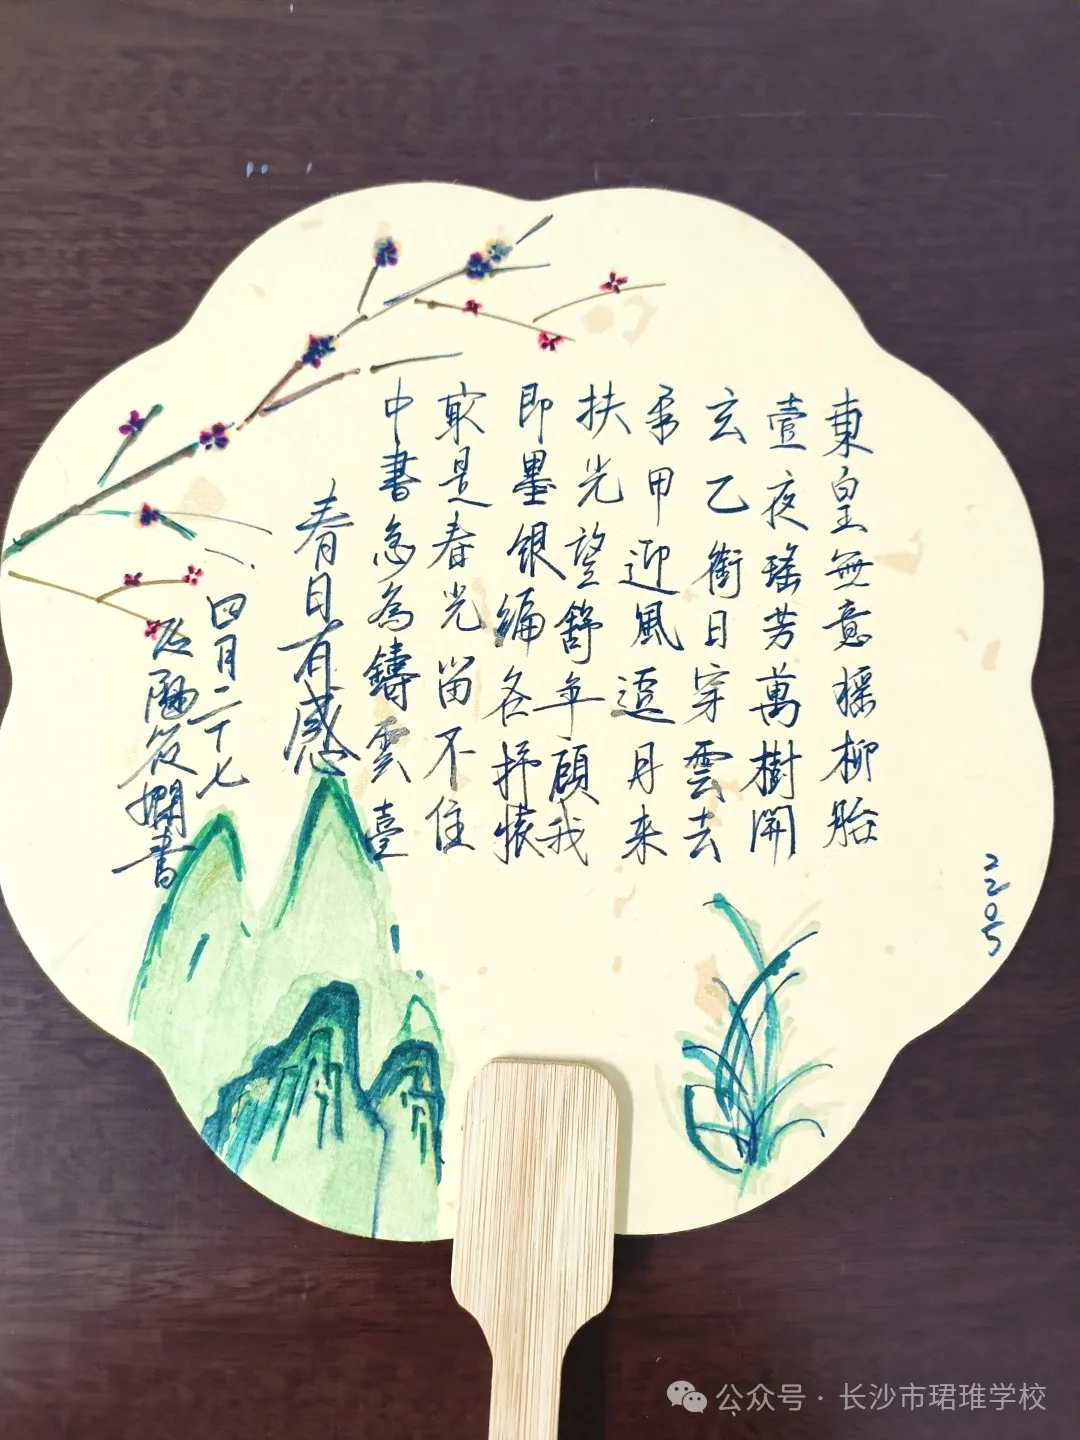 東皇無意摇柳胎
壹夜瑤芳萬樹開
玄乙銜日穿雲去
甲迎風逗月来
扶光望舒年顧我
即墨银编各抒懷
冣是春光留不住
中書急為鑄雲臺
春日有感
四月二十七
書
公众号 · 长沙市珺琟学校